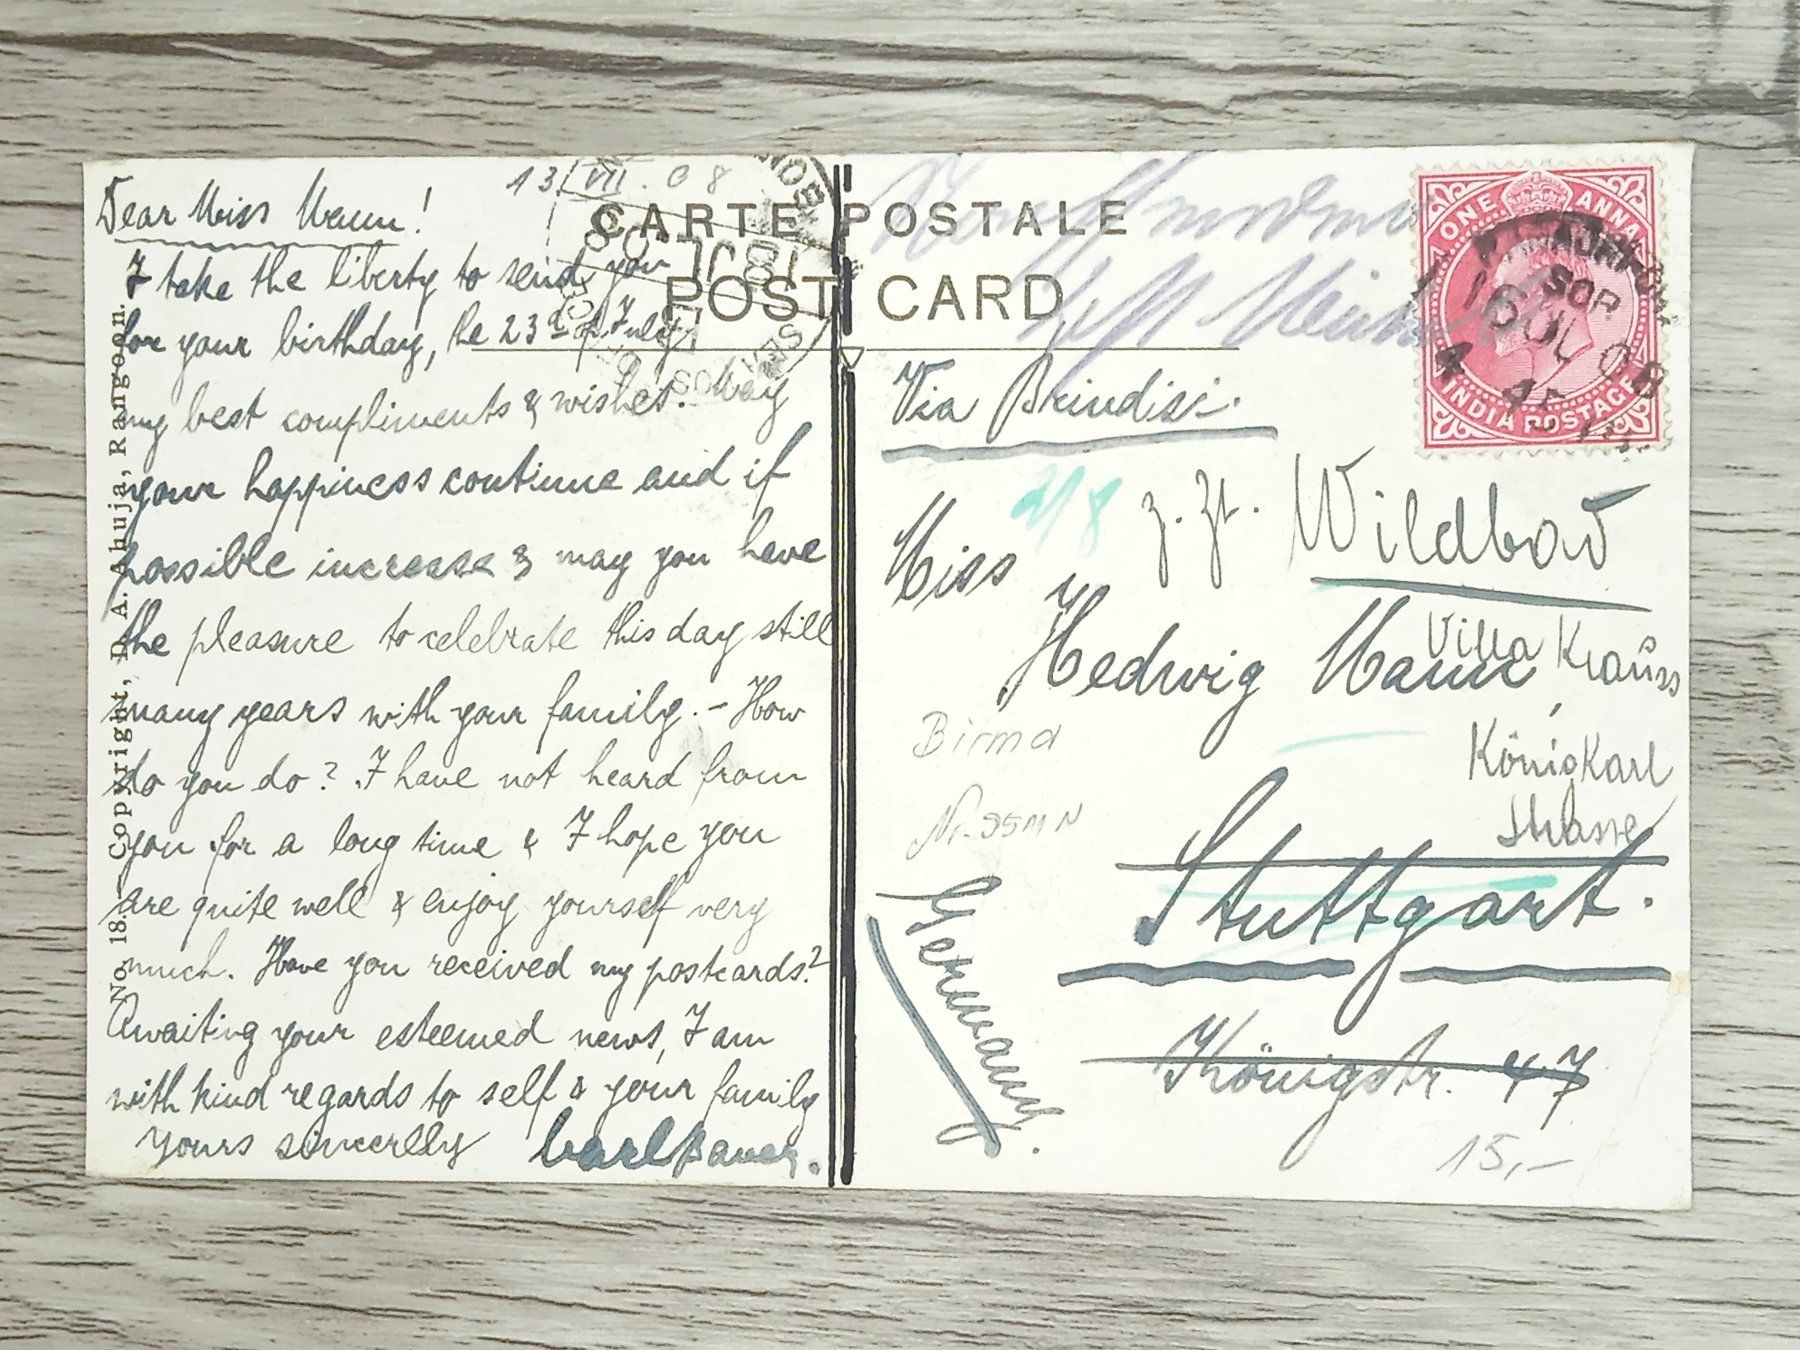 13 VII. 08
Dear Miss Mann!
I take the liberty to send you
for your birthday, the 23d of July
my best compliments & wishes. May
your happiness continue and if
possible increase & may you have
the pleasure to celebrate this day still
many years with your family. – How
do you do? I have not heard from
you for a long time & I hope you
are quite well & enjoy yourself very
much. Have you received my postcards?
Awaiting your esteemed news, I am
with kind regards to self & your family
yours sincerelly Carl Bauer.
No. 18. Copyright, D. A. Ahuja, Rangoon.
CARTE POSTALE
POST CARD
ONE ANNA
INDIA POSTAGE
SOR
16 JUL 08
4 45
Via Brindisi.
2/8
z. Zt. Wildbad
Miss
Hedwig Mann
Villa Krauss
König Karl
Strasse
Birma
Stuttgart.
Königstr. 47
Germany.
15,–